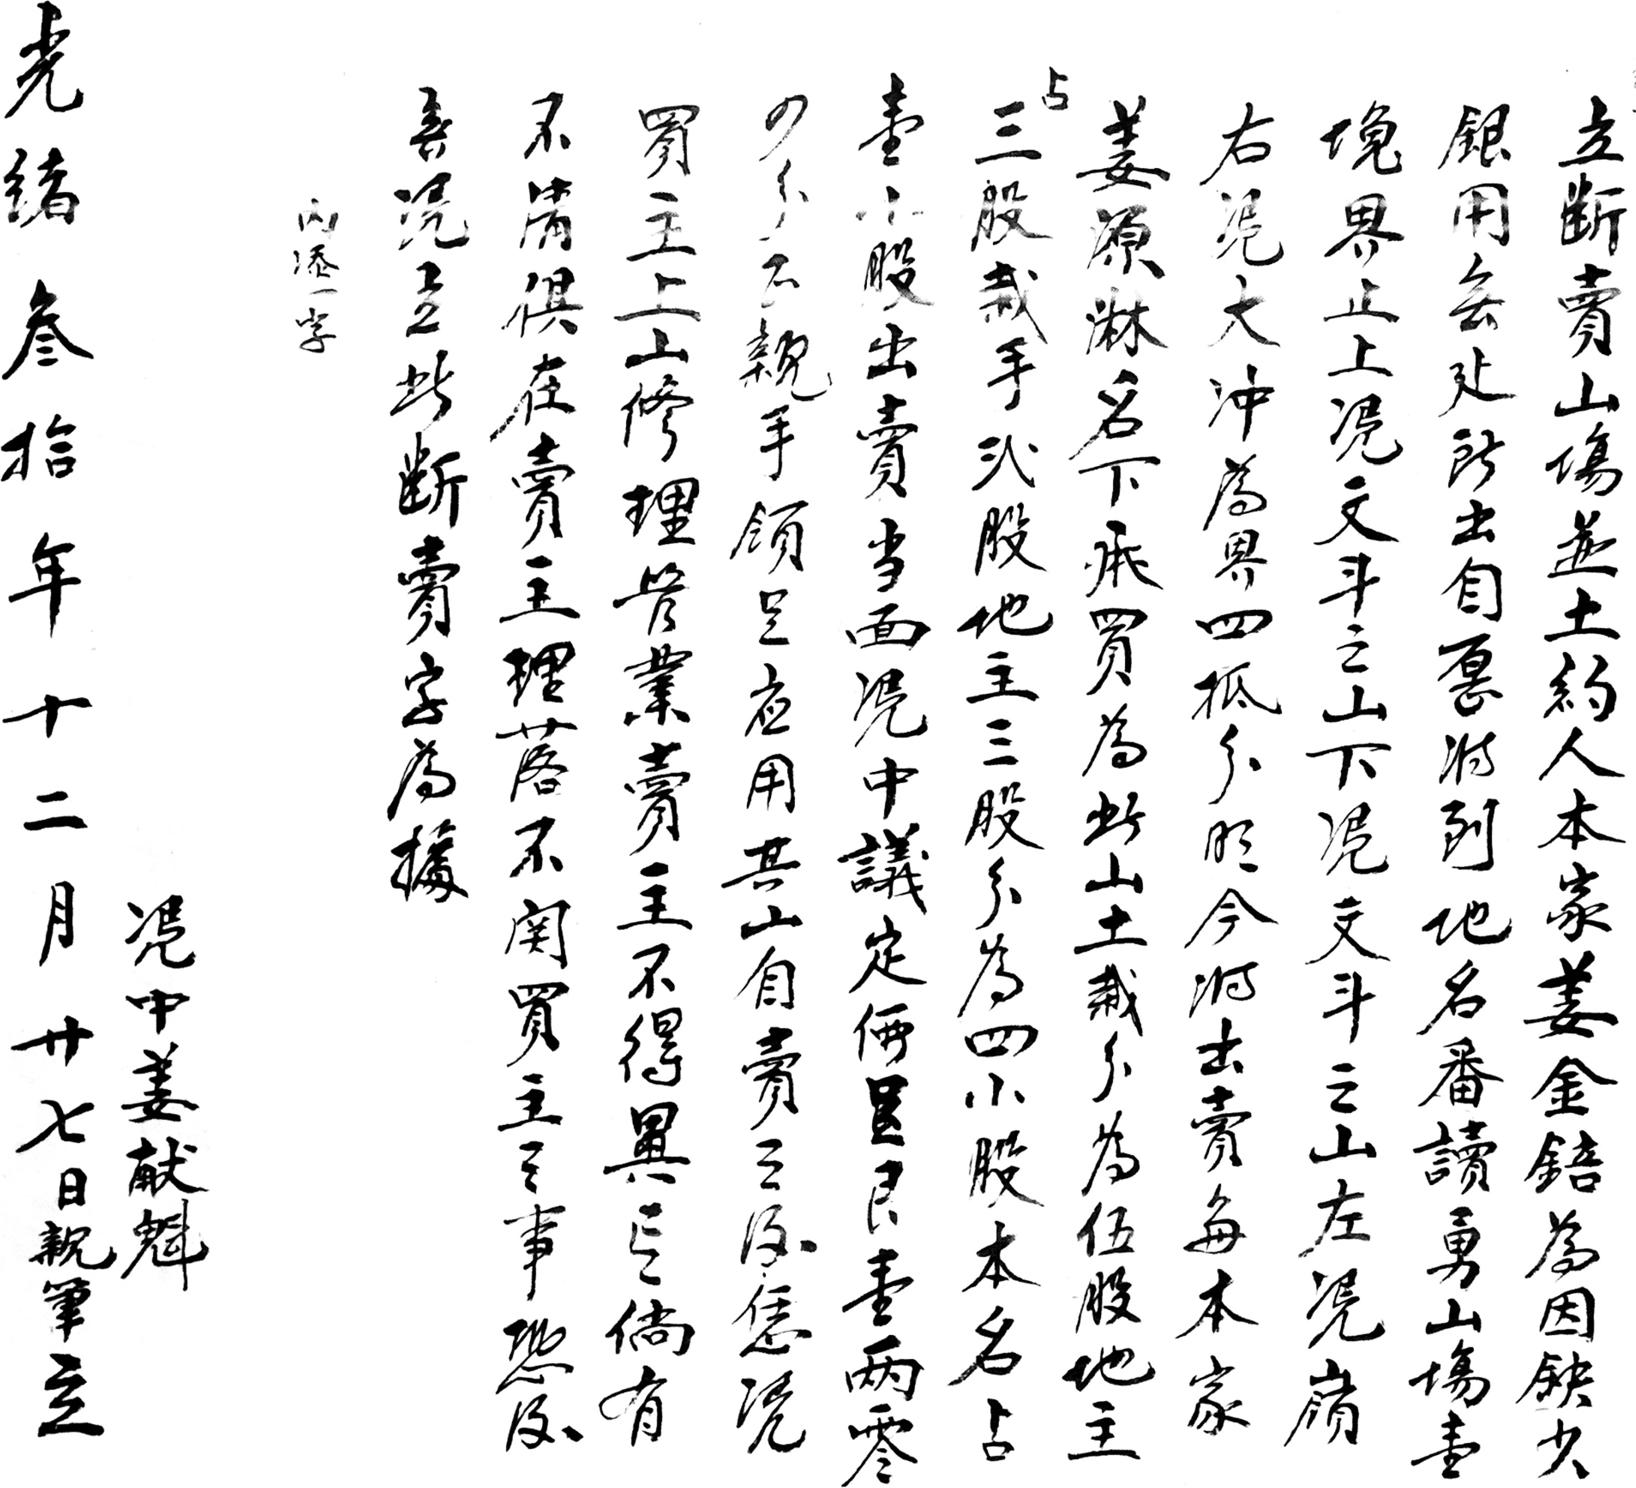 立斷賣山塲並土約人本家姜金錇為因缺少
銀用無处所出自愿將到地名番讀勇山塲壹
塊界止上凴文斗之山下凴文斗之山左凴嶺
右凴大冲為界四抵分明今將出賣與本家
姜源淋名下承買為此山土栽分為伍股地主
占三股栽手弍股地主三股分為四小股本名占
壹小股出賣当面凴中議定價艮壹両零
四分正親手領足应用其山自賣之後恁凴
買主上山修理管業賣主不得異言倘有
不清俱在賣主理落不関買主之事恐後
無凴立此断賣字為據
内添一字
凴中姜献魁
光緒叁拾年十二月廿七日親筆立